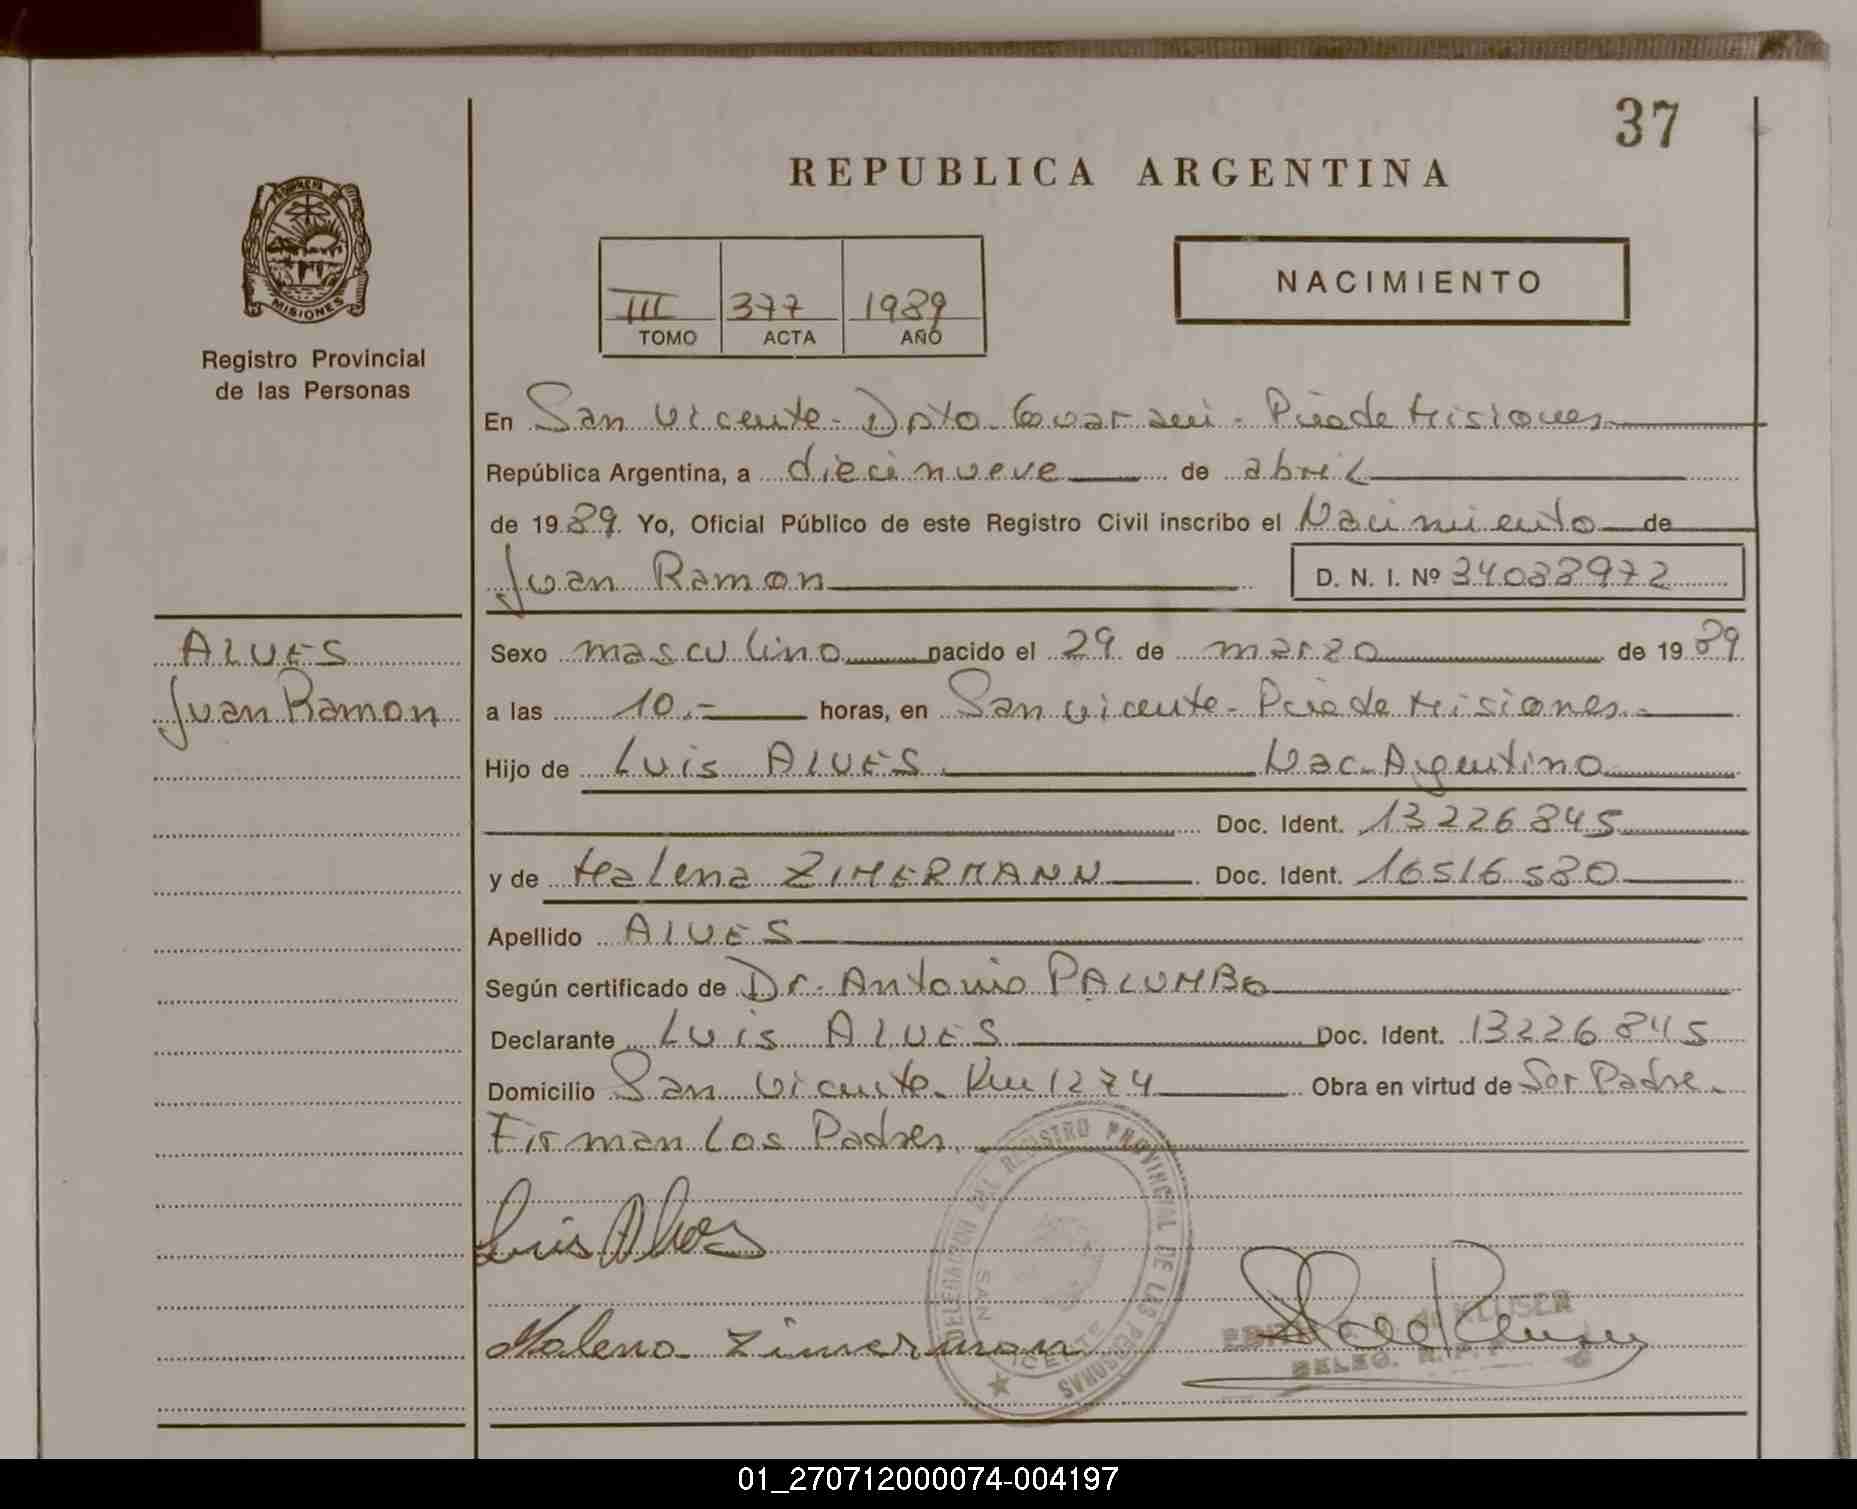 37
REPUBLICA ARGENTINA
PROVINCIA DE
MISIONES
Registro Provincial
de las Personas
III 377 1989
TOMO ACTA AÑO
NACIMIENTO
En San Vicente - Dpto. Guarani - Pcia de Misiones
República Argentina, a diecinueve de abril
de 1989. Yo, Oficial Público de este Registro Civil inscribo el Nacimiento de
Juan Ramon D. N. I. Nº 34088972
ALVES
Juan Ramon
Sexo masculino nacido el 29 de marzo de 1989
a las 10.- horas, en San Vicente - Pcia de Misiones.-
Hijo de Luis ALVES Nac. Argentino
Doc. Ident. 13226845
y de Halena ZIMERMANN Doc. Ident. 16516580
Apellido ALVES
Según certificado de Dr. Antonio PALUMBO
Declarante Luis ALVES Doc. Ident. 13226845
Domicilio San Vicente. Km 1274 Obra en virtud de Ser Padre.
Firman Los Padres.
Luis Alves
DELEGACION DEL REGISTRO PROVINCIAL DE LAS PERSONAS
SAN VICENTE
Halena Zimerman
de KLUSER
DELEG. R. P. P.
01_270712000074-004197